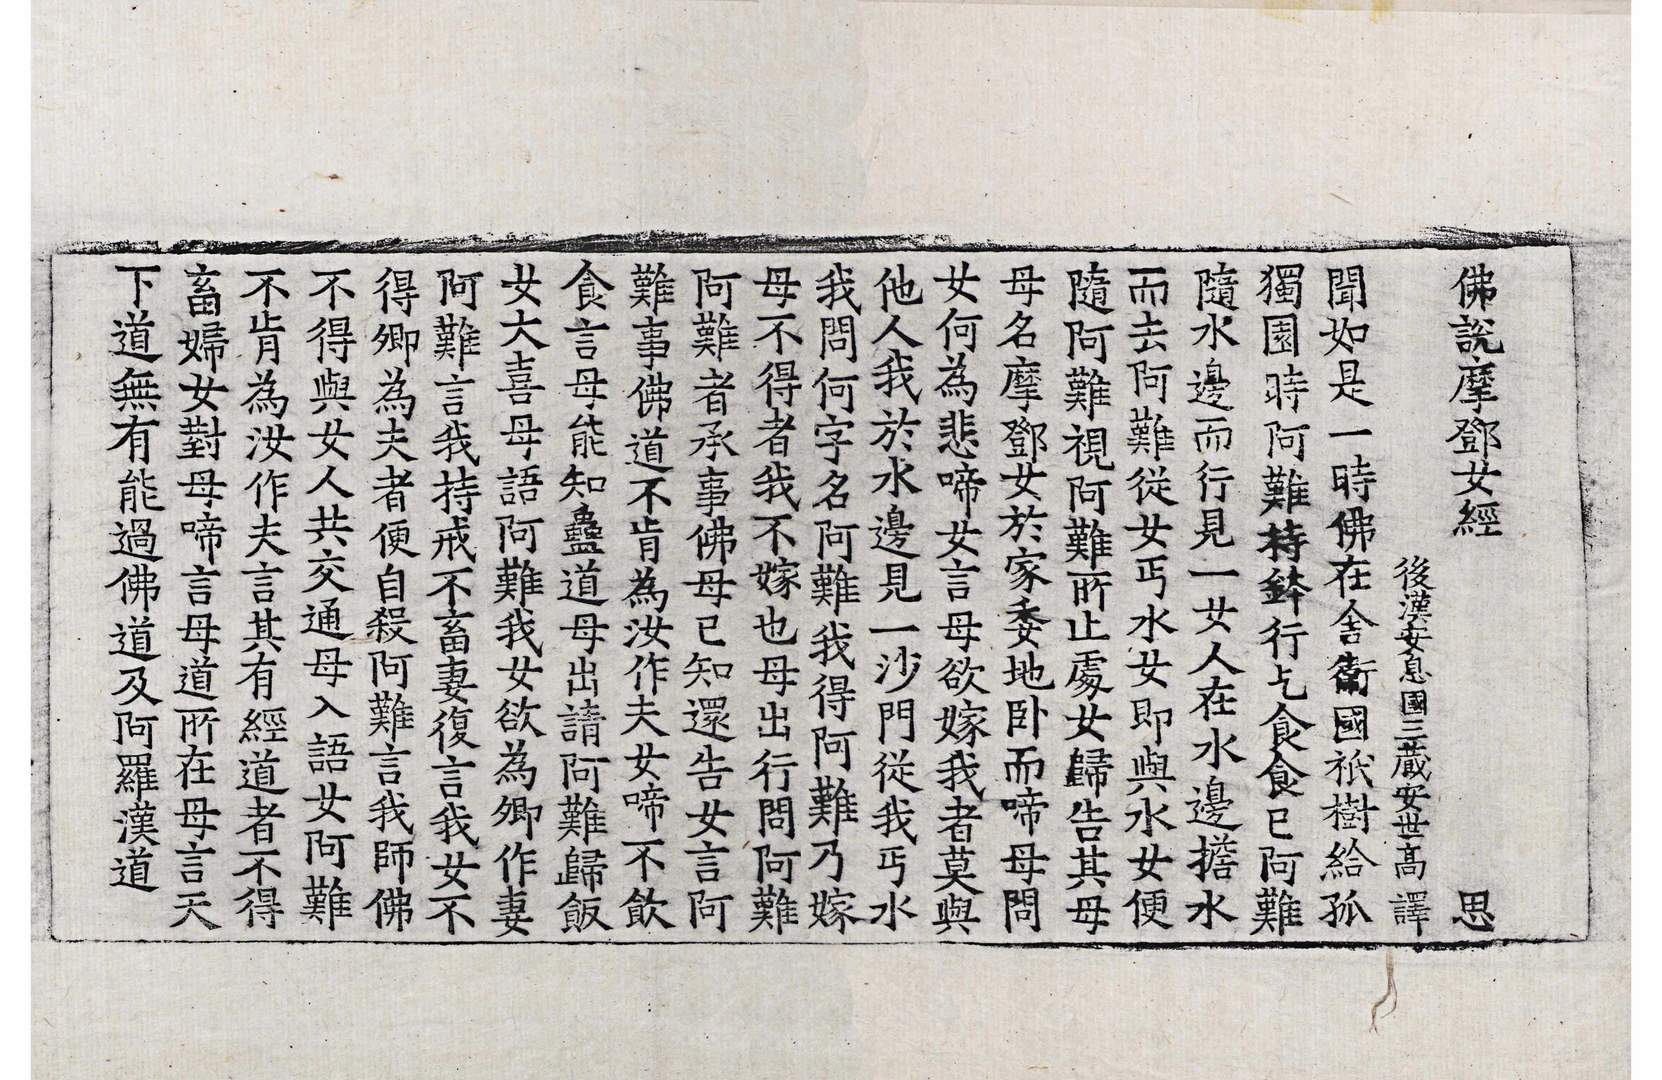 佛說摩鄧女經 思
後漢安息國三藏安世高 譯
聞如是一時佛在舍衛國祇樹給孤
獨園時阿難持鉢行乞食食已阿難
隨水邊而行見一女人在水邊擔水
而去阿難從女丐水女即與水女便
隨阿難視阿難所止處女歸告其母
母名摩鄧女於家委地卧而啼母問
女何為悲啼女言母欲嫁我者莫與
他人我於水邊見一沙門從我丐水
我問何字名阿難我得阿難乃嫁
母不得者我不嫁也母出行問阿難
阿難者承事佛母已知還告女言阿
難事佛道不肯為汝作夫女啼不飲
食言母能知蠱道母出請阿難歸飯
女大喜母語阿難我女欲為卿作妻
阿難言我持戒不畜妻復言我女不
得卿為夫者便自殺阿難言我師佛
不得與女人共交通母入語女阿難
不肯為汝作夫言其有經道者不得
畜婦女對母啼言母道所在母言天
下道無有能過佛道及阿羅漢道